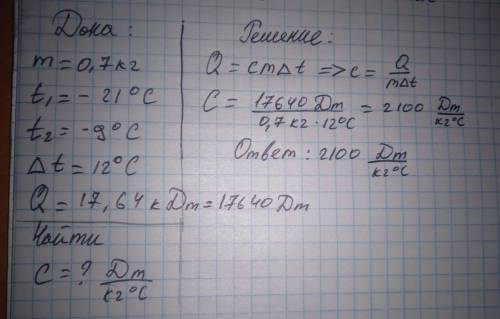 Дано:
m = 0,7 кг
t₁ = - 21°C
t₂ = -9°C
Δt = 12°C
Q = 17,64 к Дж = 17640 Дж
Найти
C = ? Дж/кг°C
Решение:
Q = cmΔt => c = Q/mΔt
C = 17640 Дж/0,7 кг · 12°C = 2100 Дж/кг°C
Ответ: 2100 Дж/кг°C